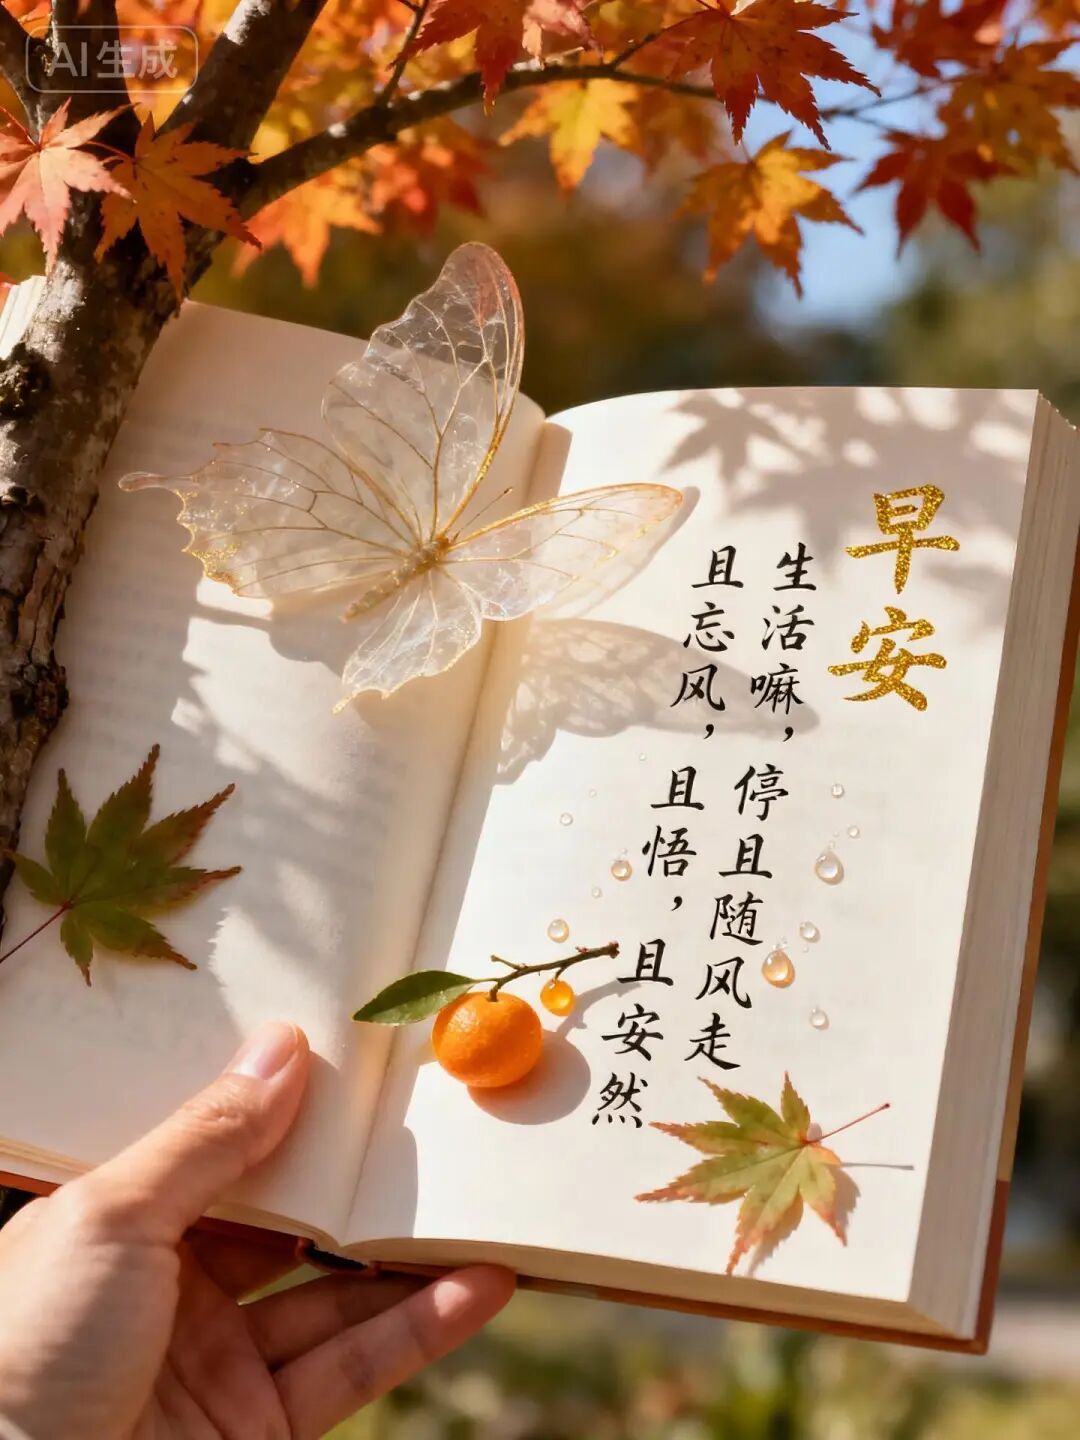 AI生成
早安
生活嘛，停且随风走
且忘风，且悟，且安然